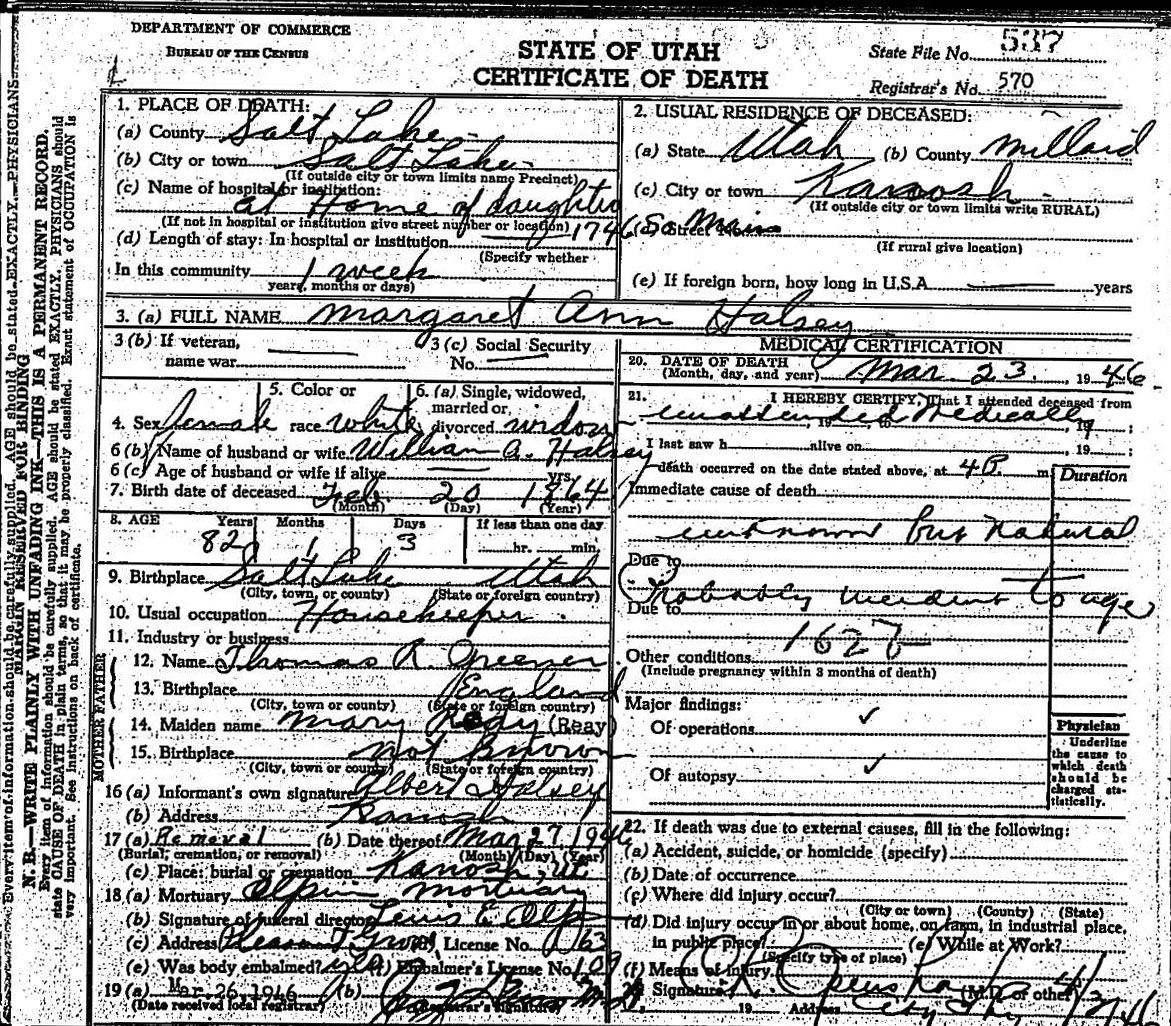 DEPARTMENT OF COMMERCE
BUREAU OF THE CENSUS
STATE OF UTAH
CERTIFICATE OF DEATH
State File No. 537
Registrar's No. 570
Every item of information should be carefully supplied. AGE should be stated EXACTLY. PHYSICIANS
MARGIN RESERVED FOR BINDING
N. B.—WRITE PLAINLY WITH UNFADING INK—THIS IS A PERMANENT RECORD.
Every item of information should be carefully supplied. AGE should be stated EXACTLY. PHYSICIANS should
state CAUSE OF DEATH in plain terms, so that it may be properly classified. Exact statement of OCCUPATION is
very important. See instructions on back of certificate.
1. PLACE OF DEATH:
(a) County Salt Lake
(b) City or town Salt Lake
(If outside city or town limits name Precinct)
(c) Name of hospital or institution:
at Home of daughter
(If not in hospital or institution give street number or location) 1746 So Main
(d) Length of stay: In hospital or institution
(Specify whether
In this community 1 week
years, months or days)
2. USUAL RESIDENCE OF DECEASED:
(a) State Utah (b) County Millard
(c) City or town Kanosh
(If outside city or town limits write RURAL)
(If rural give location)
(e) If foreign born, how long in U.S.A. years
3. (a) FULL NAME Margaret Ann Halsey
3 (b) If veteran,
name war
3 (c) Social Security
No.
4. Sex female
5. Color or
race white
6. (a) Single, widowed,
married or,
divorced widow
6 (b) Name of husband or wife William A. Halsey
6 (c) Age of husband or wife if alive yrs.
7. Birth date of deceased Feb 20 1864
(Month) (Day) (Year)
8. AGE Years Months Days If less than one day
82 1 3 hr. min.
9. Birthplace Salt Lake Utah
(City, town, or county) (State or foreign country)
10. Usual occupation Housekeeper
11. Industry or business
FATHER
12. Name Thomas R. Greener
13. Birthplace England
(City, town or county) (State or foreign country)
MOTHER
14. Maiden name Mary Reay (Reay)
15. Birthplace not known
(City, town or county) (State or foreign country)
16 (a) Informant's own signature Albert Halsey
(b) Address Kanosh
17 (a) Removal (b) Date thereof Mar 27 1946
(Burial, cremation, or removal) (Month) (Day) (Year)
(c) Place: burial or cremation Kanosh, Ut.
18 (a) Mortuary Olpin Mortuary
(b) Signature of funeral director Lewis E Olpin
(c) Address Pleasant Grove License No. 163
(e) Was body embalmed? yes (f) Embalmer's License No. 109
19 (a) Mar 26 1946 (b)
(Date received local registrar) (Registrar's signature)
MEDICAL CERTIFICATION
20. DATE OF DEATH
(Month, day, and year) Mar 23, 1946
21. I HEREBY CERTIFY, That I attended deceased from
unattended Medically, 19 ;
I last saw h alive on , 19 ;
death occurred on the date stated above, at 4 P. m
Duration
Immediate cause of death
unknown but Natural
Due to
Probably incident to age
Due to
162
Other conditions
(Include pregnancy within 3 months of death)
Major findings:
Of operations ✓
Of autopsy ✓
Physician
Underline
the cause to
which death
should be
charged sta-
tistically.
22. If death was due to external causes, fill in the following:
(a) Accident, suicide, or homicide (specify)
(b) Date of occurrence
(c) Where did injury occur?
(City or town) (County) (State)
(d) Did injury occur in or about home, on farm, in industrial place,
in public place? (e) While at Work?
(Specify type of place)
(f) Means of injury
Signature (M.D. or other)
19 Address City